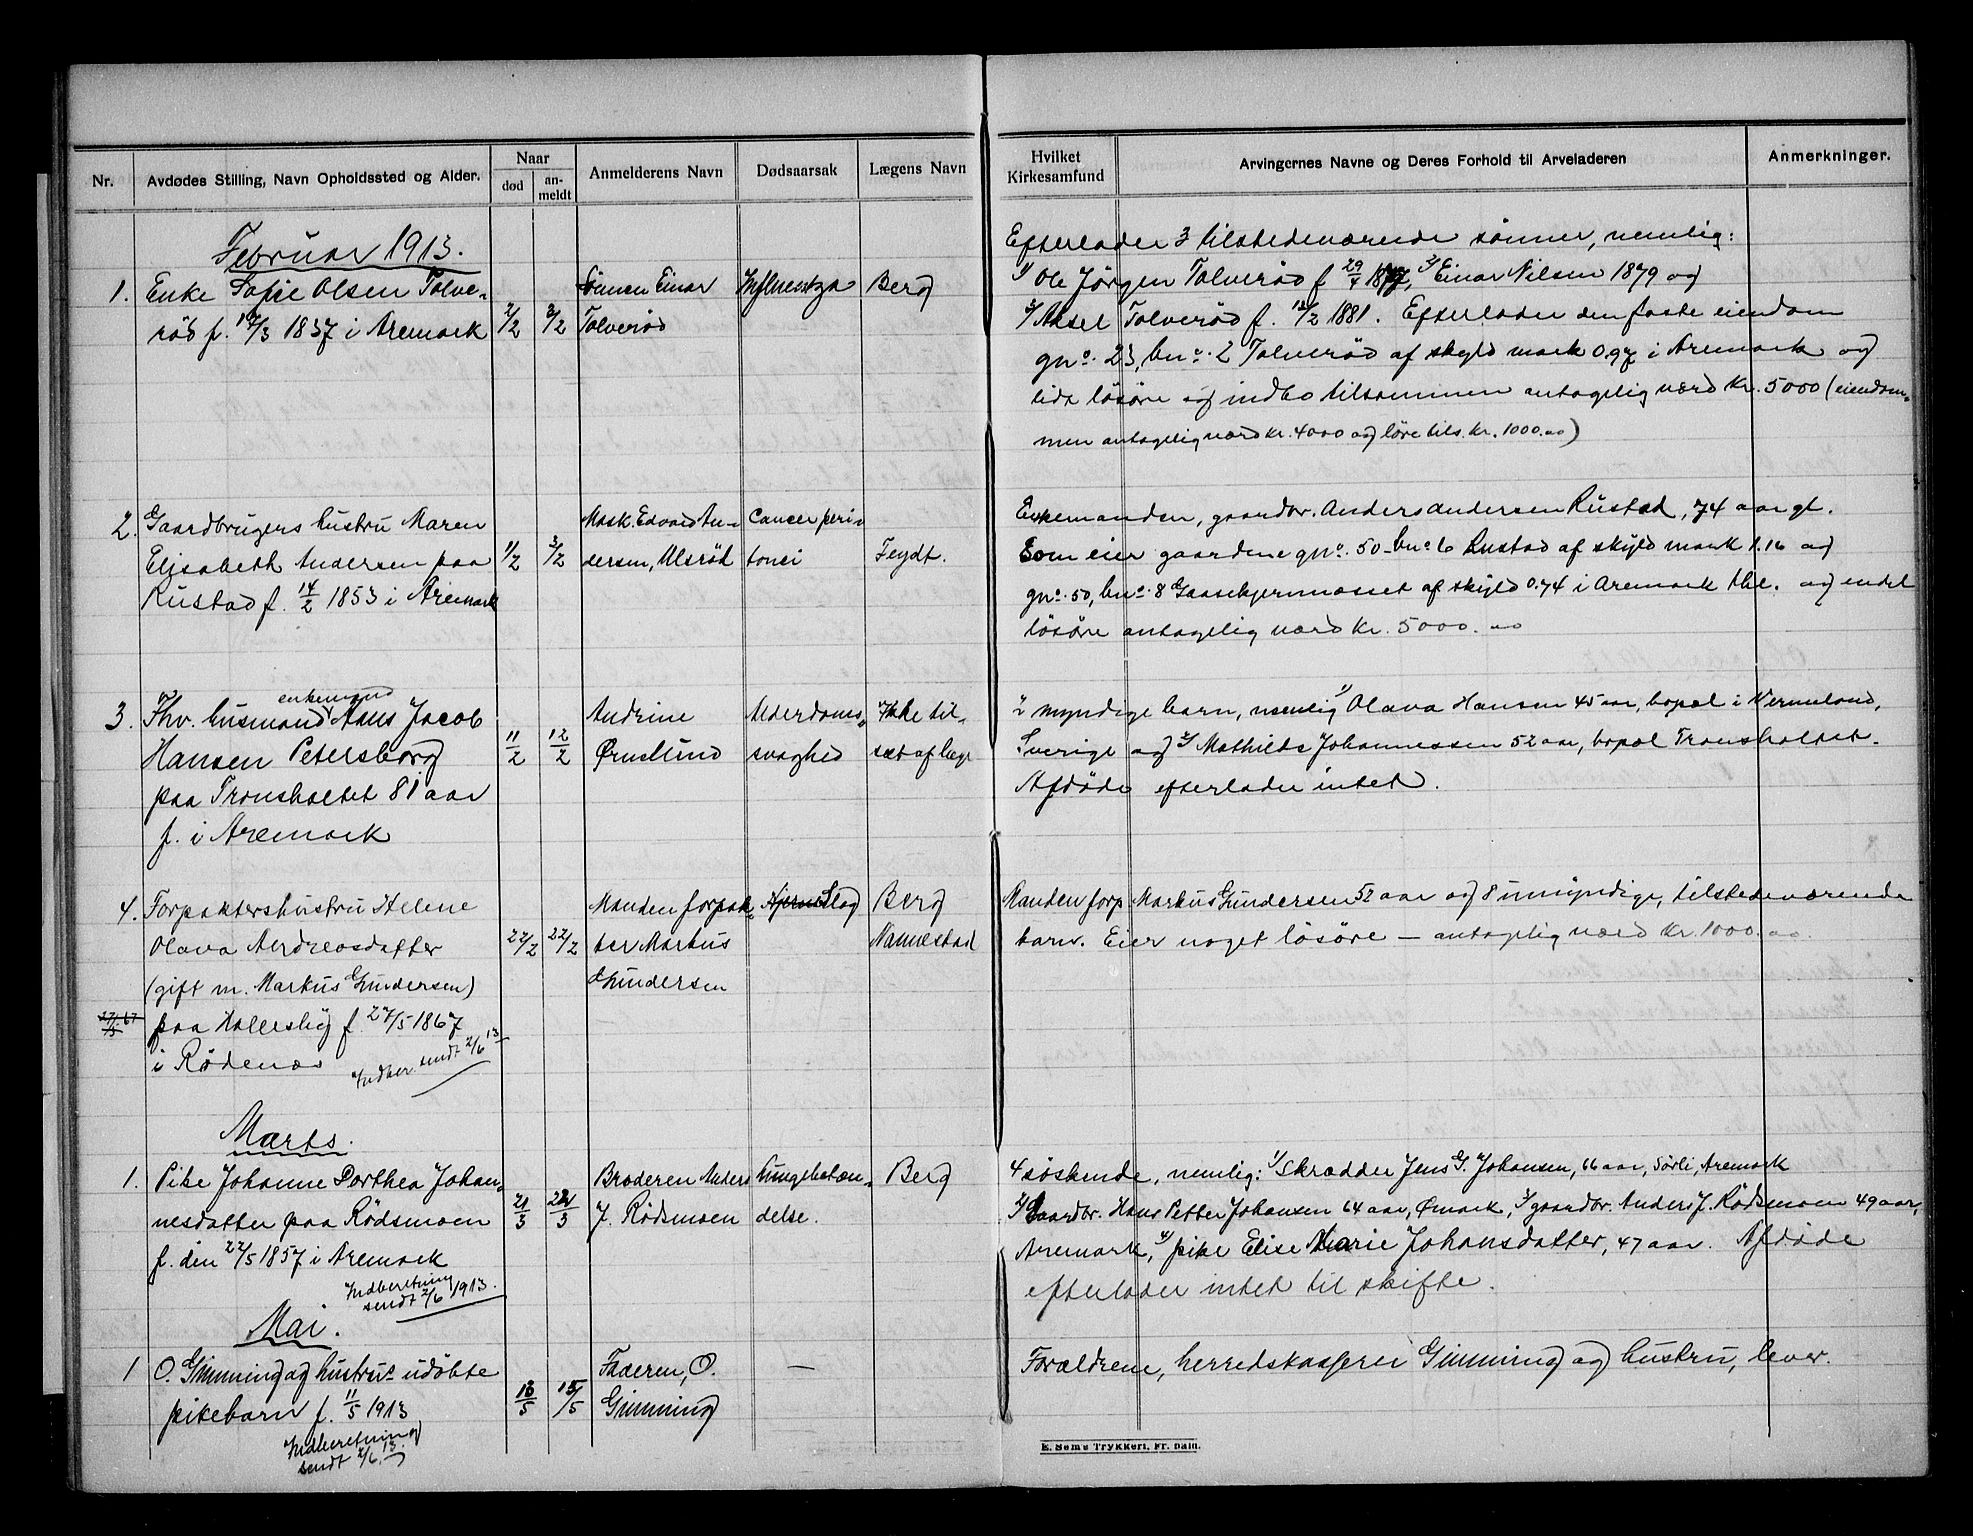 Nr.
Avdødes Stilling, Navn Opholdssted og Alder.
Naar
død
an-
meldt
Anmelderens Navn
Dødsaarsak
Lægens Navn
Hvilket
Kirkesamfund
Arvingernes Navne og Deres Forhold til Arveladeren
Anmerkninger.
Februar 1913.
1. Enke Sofie Olsen Tolve-
rød f. 17/3 1837 i Aremark
2/2
3/2
Sønnen Einar
Tolverød
Influentza
Berg
Efterlader 3 tilstedeværende sønner, nemlig:
1/ Ole Jørgen Tolverød f 29/4 1877, 2/ Einar Nilsen 1879 og
3/ Aksel Tolverød f. 12/2 1881. Efterlader den faste eiendom
gno. 23, bno. 2 Tolverød af skyld mark 0.97 i Aremark og
lidt løsøre og indbo tilsammen antagelig værd kr. 5000 (eiendom-
men antagelig værd kr. 4000 og løre tils. kr. 1000.00)
2. Gaardbrugers hustru Maren
Elisabeth Andersen paa
Rustad f. 14/2 1853 i Aremark
1/2
3/2
Mask. Edvard An-
dersen, Ulsröd
Cancer peri-
tonei
Feydt.
Enkemanden, gaardbr. Anders Andersen Rustad, 74 aar gl.
Som eier gaardene gno. 50 bno 6 Rustad af skyld mark 1.16 og
gno. 50, bno. 8 Gaasekjernmosset af skyld 0.74 i Aremark thl. og endel
løsøre antagelig værd kr. 5000.00
enkemand
3. Fhv. husmand Hans Jacob
Hansen Petersborg
paa Tronsholtet 81 aar
f. i Aremark
11/2
12/2
Andrine
Ørnslund
Alderdoms-
svaghed
Ikke til-
set af læge
2 myndige barn, nemlig 1/ Olava Hansen 45 aar, bopæl i Vermeland,
Sverige og 2/ Mathilde Johannessen 52 aar, bopæl Tronsholtet.
Afdøde efterlader intet.
4. Forpaktershustru Helene
Olava Andreasdatter
(gift m. Markus Gundersen)
paa Hallesby f. 27/5 1867
i Rødenæs
27/5 67
Indber. sendt 2/6 13
22/2
22/2
Manden forpak-
ter Markus
Gundersen
Hjerneslag
Berg
Nannestad
Manden forp Markus Gundersen 52 aar og 8 umyndige, tilstedeværende
barn. Eier noget løsøre – antagelig værd kr. 1000.00.
Marts.
1. Pike Johanne Dorthea Johan-
nesdatter paa Rødsmoen
f. den 22/5 1857 i Aremark
Indberetning
sendt 2/6 1913.
21/3
Broderen Anders
J. Rødsmoen
Lungebetæn-
delse.
Berg
4 søskende, nemlig: 1/ Skrædder Jens G. Johansen, 66 aar, Sørli, Aremark
2/ Gaardbr. Hans Petter Johansen 64 aar, Ømark, 3/ gaardbr. Anders J. Rødsmoen 49 aar,
Aremark, 4/ pike Elise Marie Johansdatter, 47 aar. Afdøde
efterlader intet til skifte.
Mai.
1 O. Gimming og hustrus udøbte
pikebarn f. 11/5 1913
Indberetning
sendt 2/6 13.
13/5
15/5
Faderen, O.
Gimming
—
Forældrene, herredskasserer Gimming og hustru, lever.
E. Sem's Trykkeri, Fr. hald.